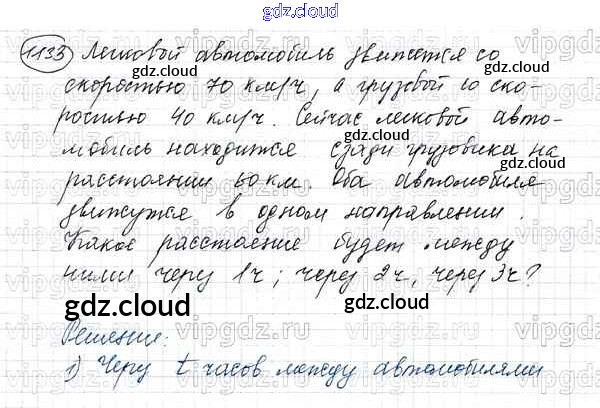 gdz.cloud
1133 Легковой автомобиль движется со
gdz.cloud
скоростью 70 км/ч, а грузовой со ско-
gdz.cloud
ростью 40 км/ч. Сейчас легковой авто-
мобиль находится сзади грузовика на
gdz.cloud
расстоянии 60 км. Оба автомобиля
gdz.cloud
движутся в одном направлении.
Какое расстояние будет между
ними через 1ч; через 2ч, через 3ч?
gdz.cloud gdz.cloud
Решение:
1) Через t часов между автомобилями